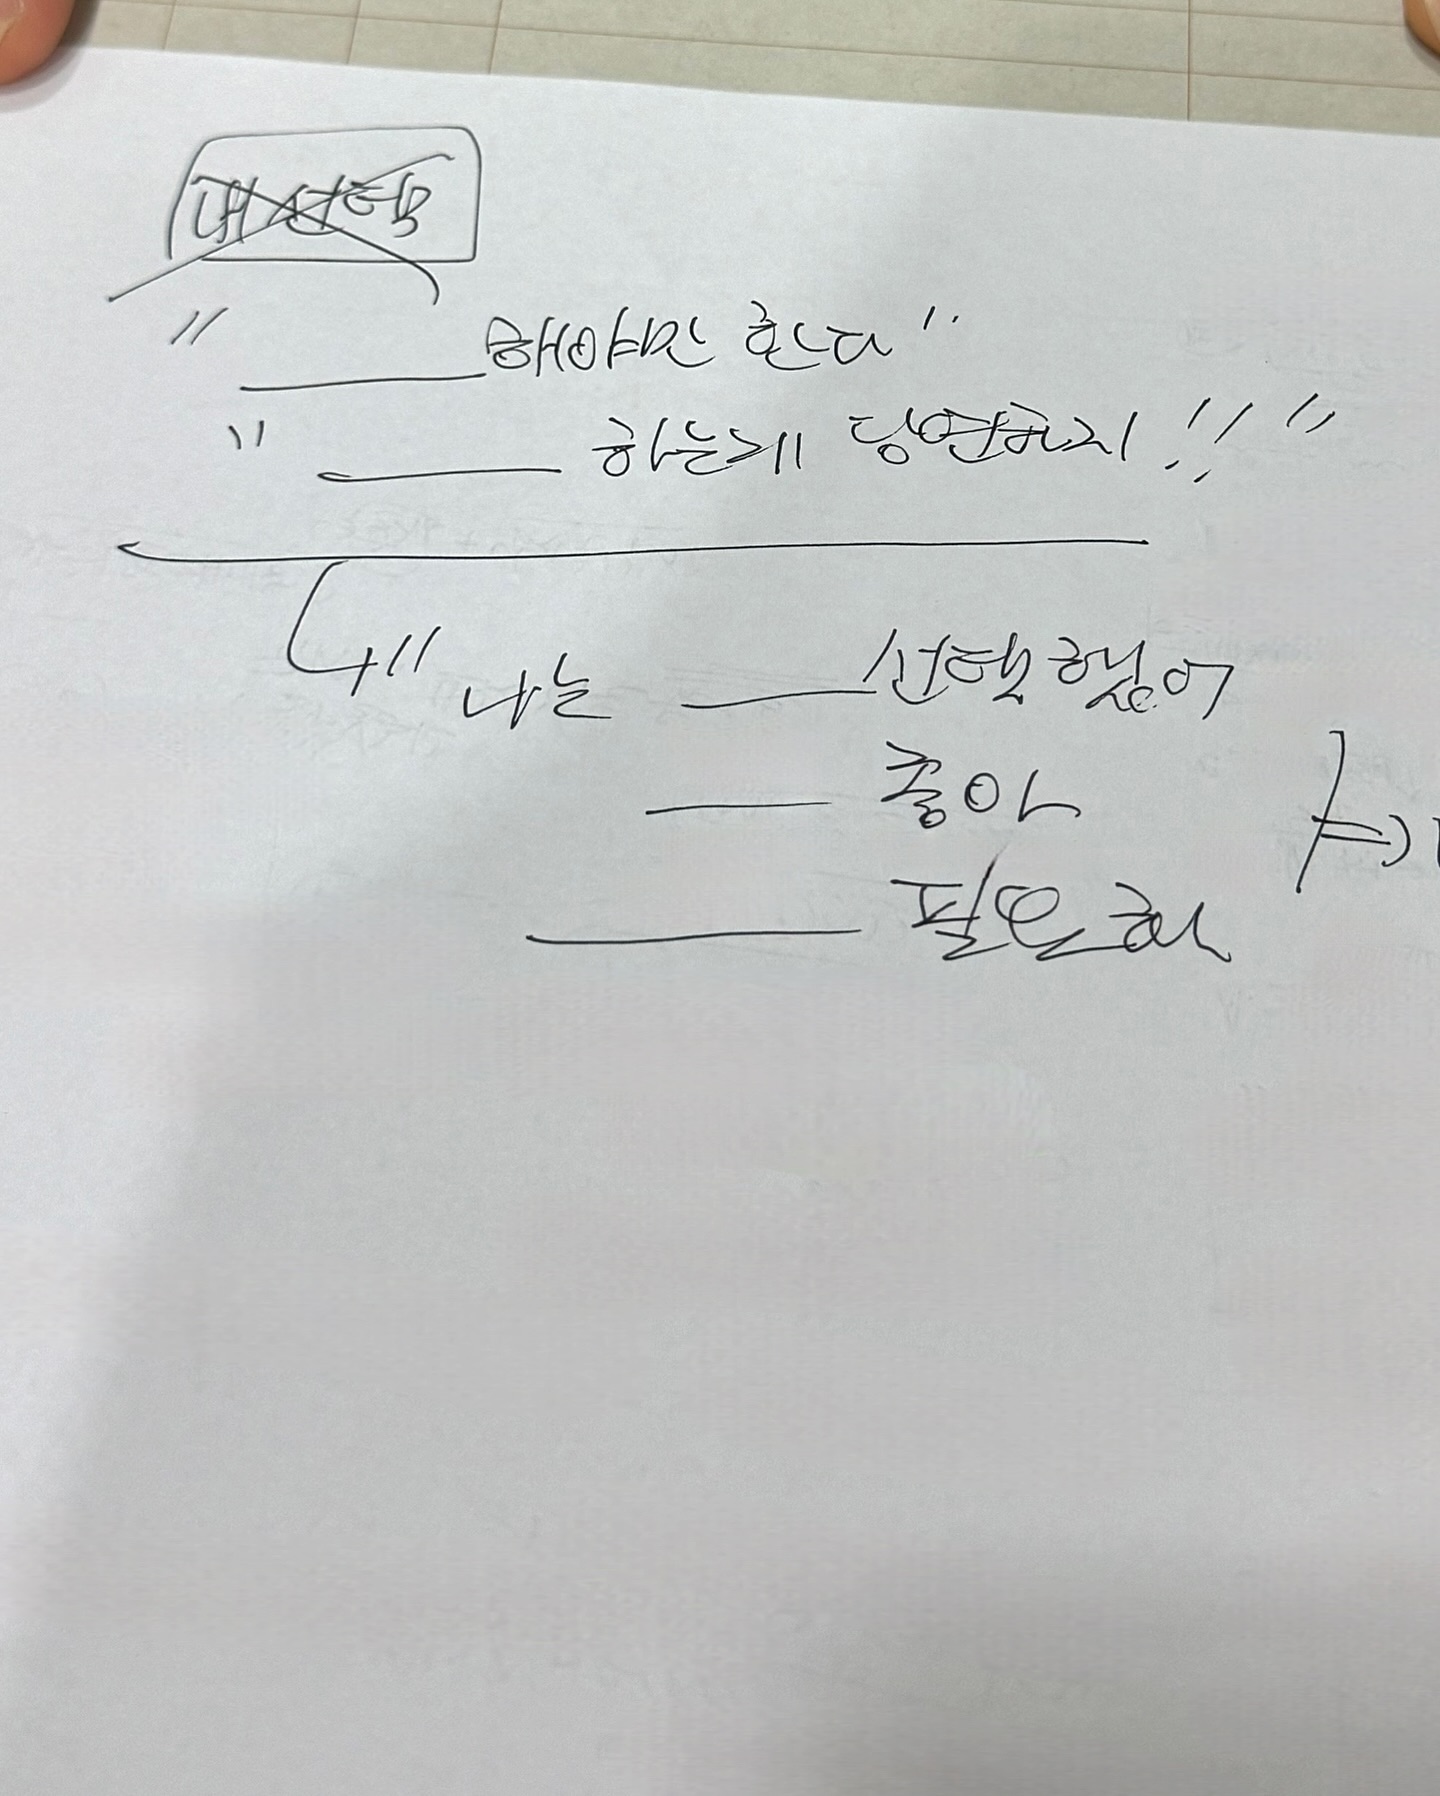 내 선택
"______해야만 한다"
"______ 하는게 당연하지!!"
↳" 나는 ______선택했어
______ 좋아
______ 필요해
⇒